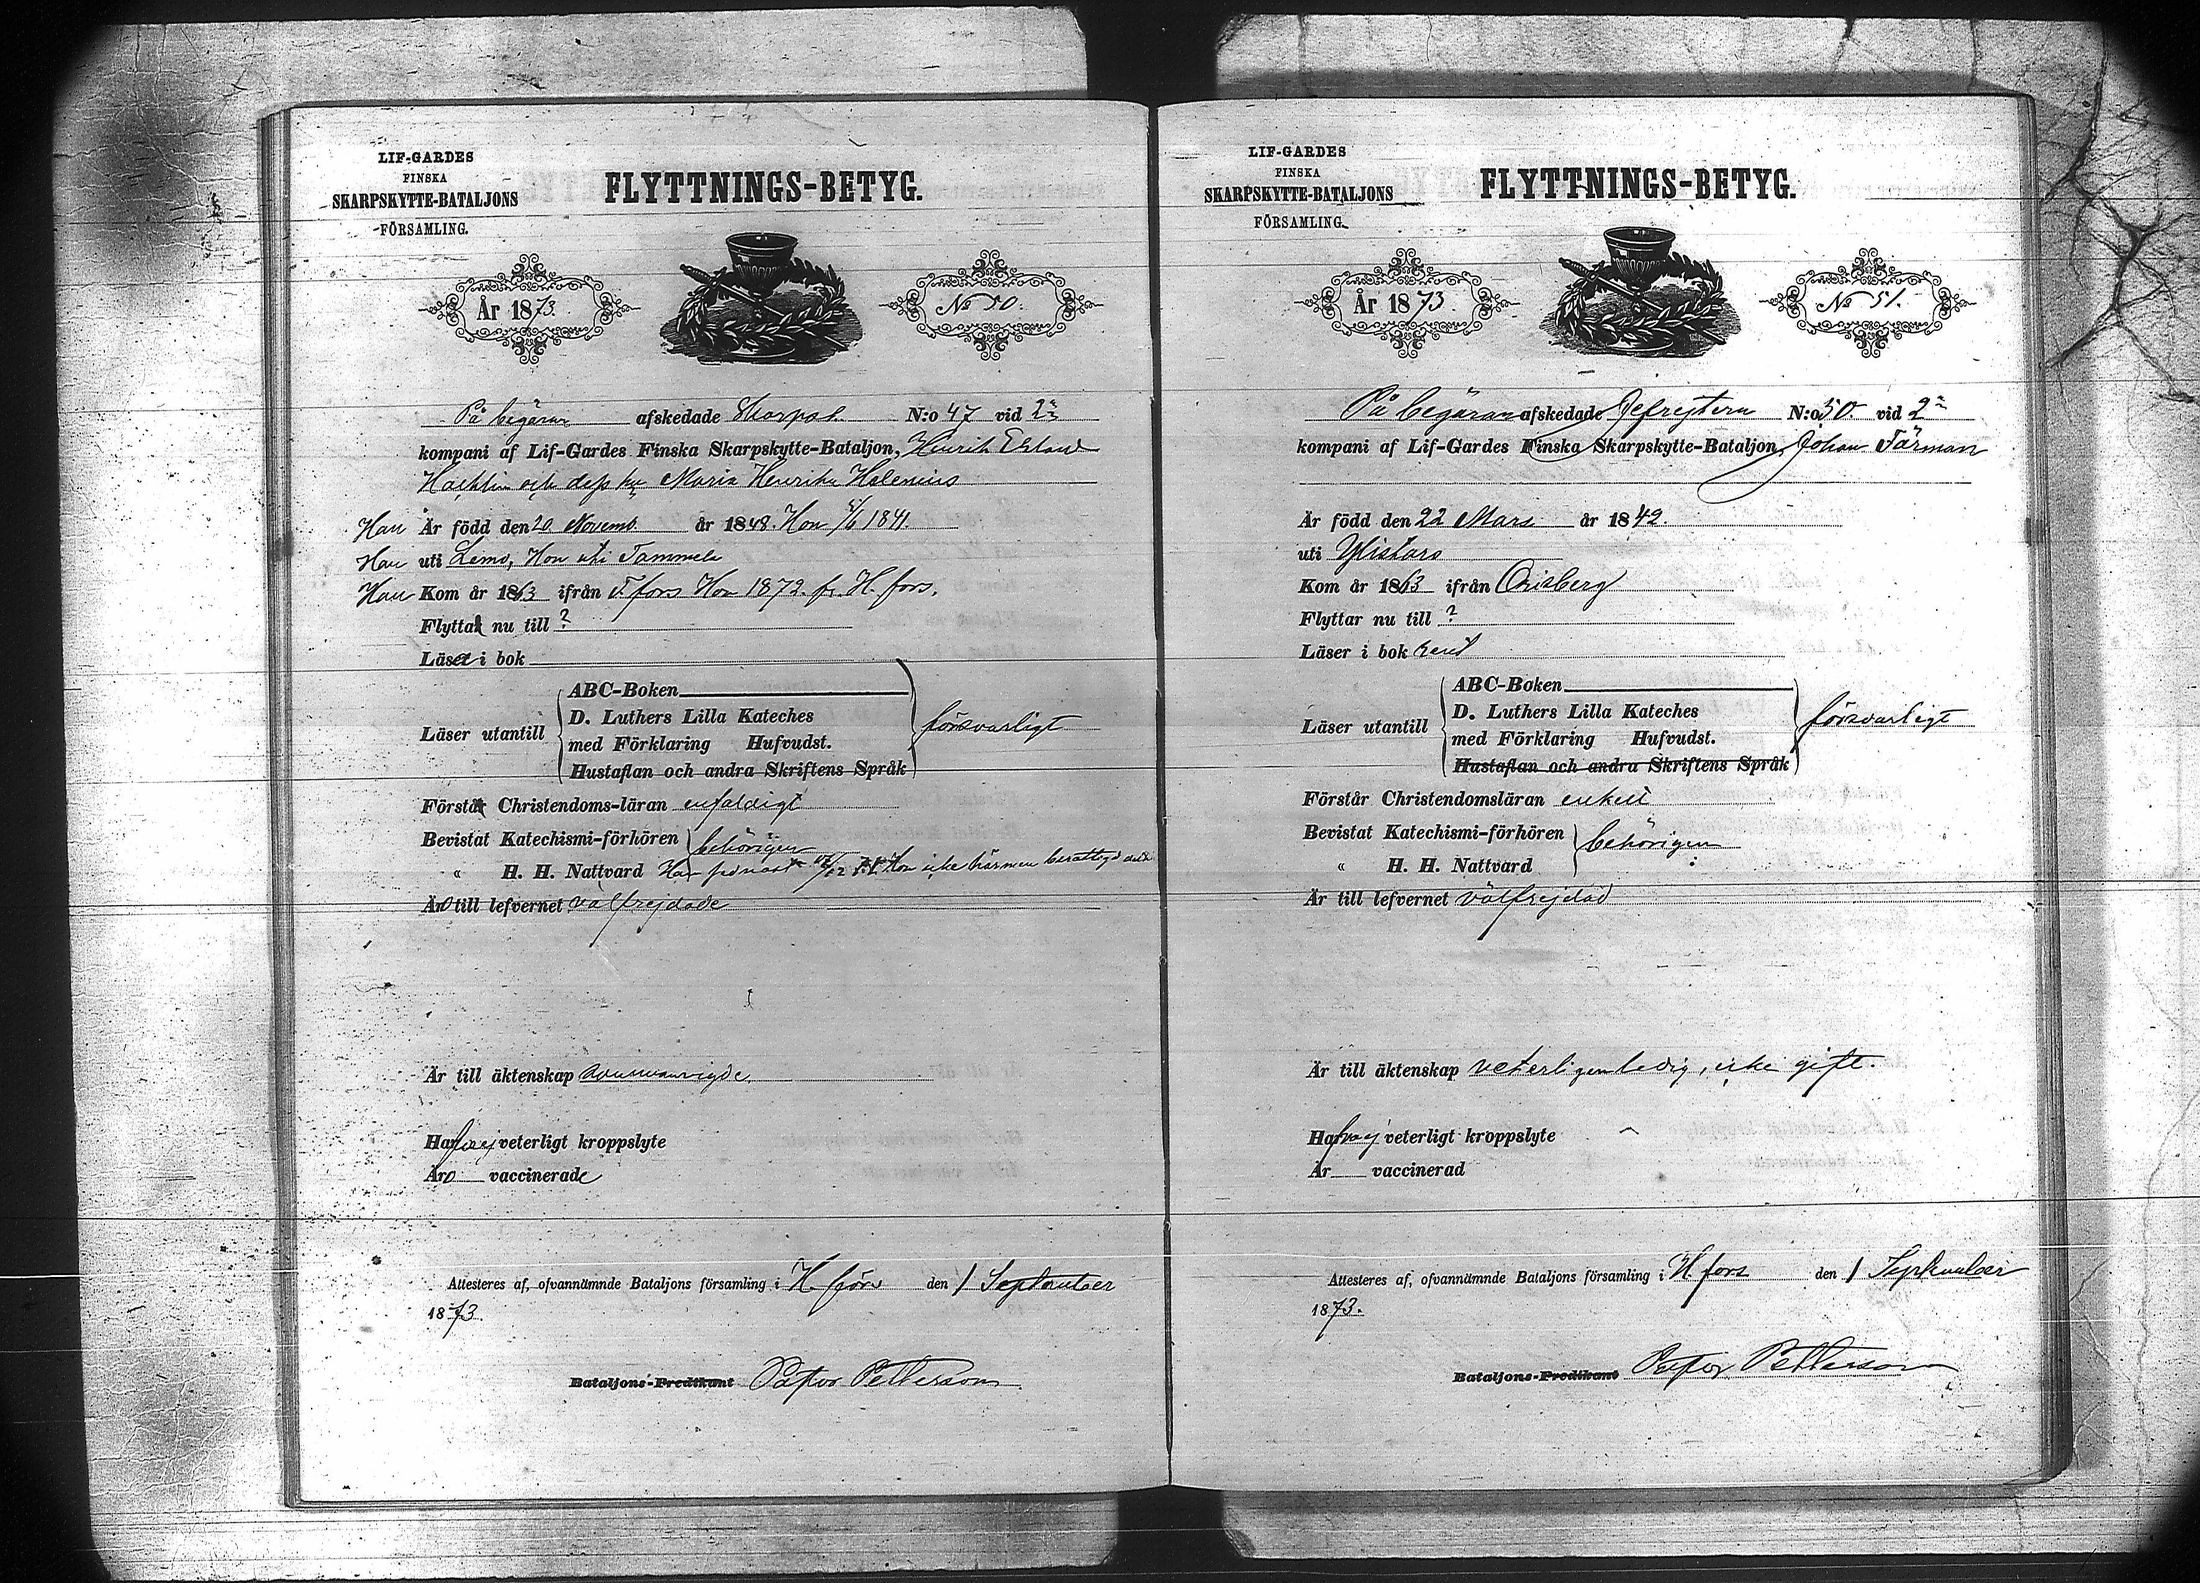 LIF-GARDES
FINSKA
SKARPSKYTTE-BATALJONS
FÖRSAMLING.
FLYTTNINGS-BETYG.
År 1873.
No 50.
På begäran afskedade Skarpsk. N:o 47 vid 2a
kompani af Lif-Gardes Finska Skarpskytte-Bataljon, Henrik
och dess hu Maria Henrika Helenius
Han Är född den 20 Novemb. år 1848. Hon 1841.
Han uti Lemo, Hon uti Tammela
Han Kom år 1863 ifrån T.fors Hon 1872 fr. H.fors.
Flytta nu till ?
Läsa i bok
Läser utantill
ABC-Boken
D. Luthers Lilla Kateches
med Förklaring Hufvudst.
Hustaflan och andra Skriftens Språk
försvarligt
Förstå Christendoms-läran enfaldigt
Bevistat Katechismi-förhören
behörigen
" H. H. Nattvard Han Hon icke härmen
Äro till lefvernet välfrejdade
Är till äktenskap
Hafva ej veterligt kroppslyte
Äro vaccinerade
Attesteres af, ofvannämnde Bataljons församling i H.fors den 1 September
1873.
Bataljons-Predikant Pastor Petterson
LIF-GARDES
FINSKA
SKARPSKYTTE-BATALJONS
FÖRSAMLING.
FLYTTNINGS-BETYG.
År 1873.
No 51.
På begäran afskedade Gefrejtern N:o 50. vid 2a
kompani af Lif-Gardes Finska Skarpskytte-Bataljon, Johan Färman
Är född den 22 Mars år 1842.
uti Ylistaro
Kom år 1863 ifrån Orisberg
Flyttar nu till ?
Läser i bok rent
Läser utantill
ABC-Boken
D. Luthers Lilla Kateches
med Förklaring Hufvudst.
Hustaflan och andra Skriftens Språk
försvarligt
Förstår Christendomsläran enkelt
Bevistat Katechismi-förhören
behörigen
" H. H. Nattvard
Är till lefvernet välfrejdad
Är till äktenskap veterligen ledig, icke gift.
Hafver ej veterligt kroppslyte
Är vaccinerad
Attesteres af, ofvannämnde Bataljons församling i H.fors den 1 September
1873.
Bataljons-Predikant Pastor Petterson